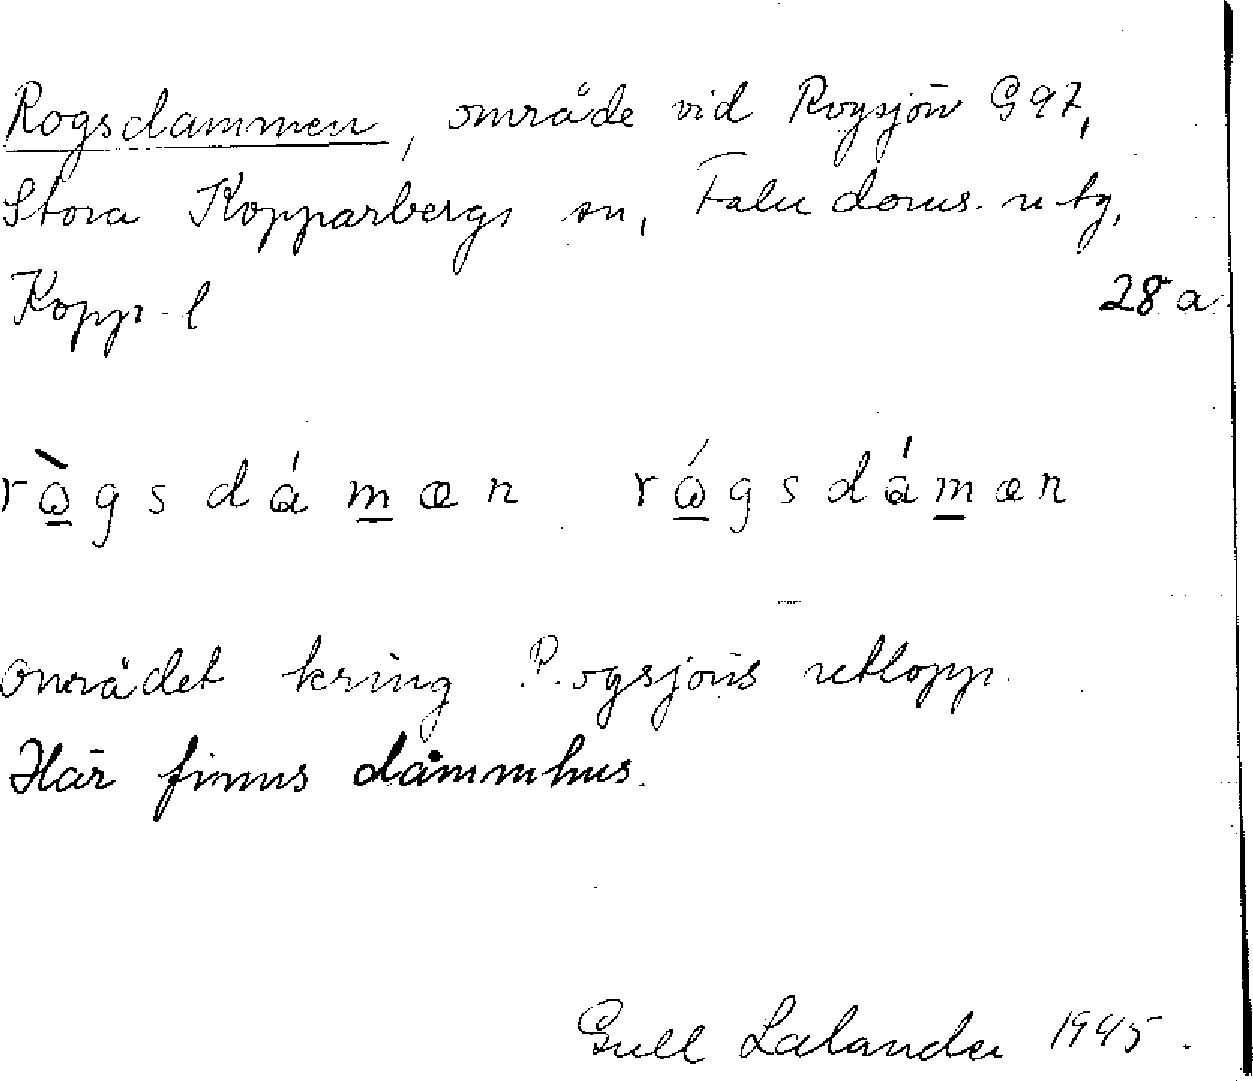 Rogsdammen, område vid Rogsjön G97,
Stora Kopparbergs sn, Falu doms. utg,
Kopp. l
28 a
rὼgsdámæn rώgsdámæn
området kring Rogsjöns utlopp.
Här finns dammhus.
Gull Lalander 1945.